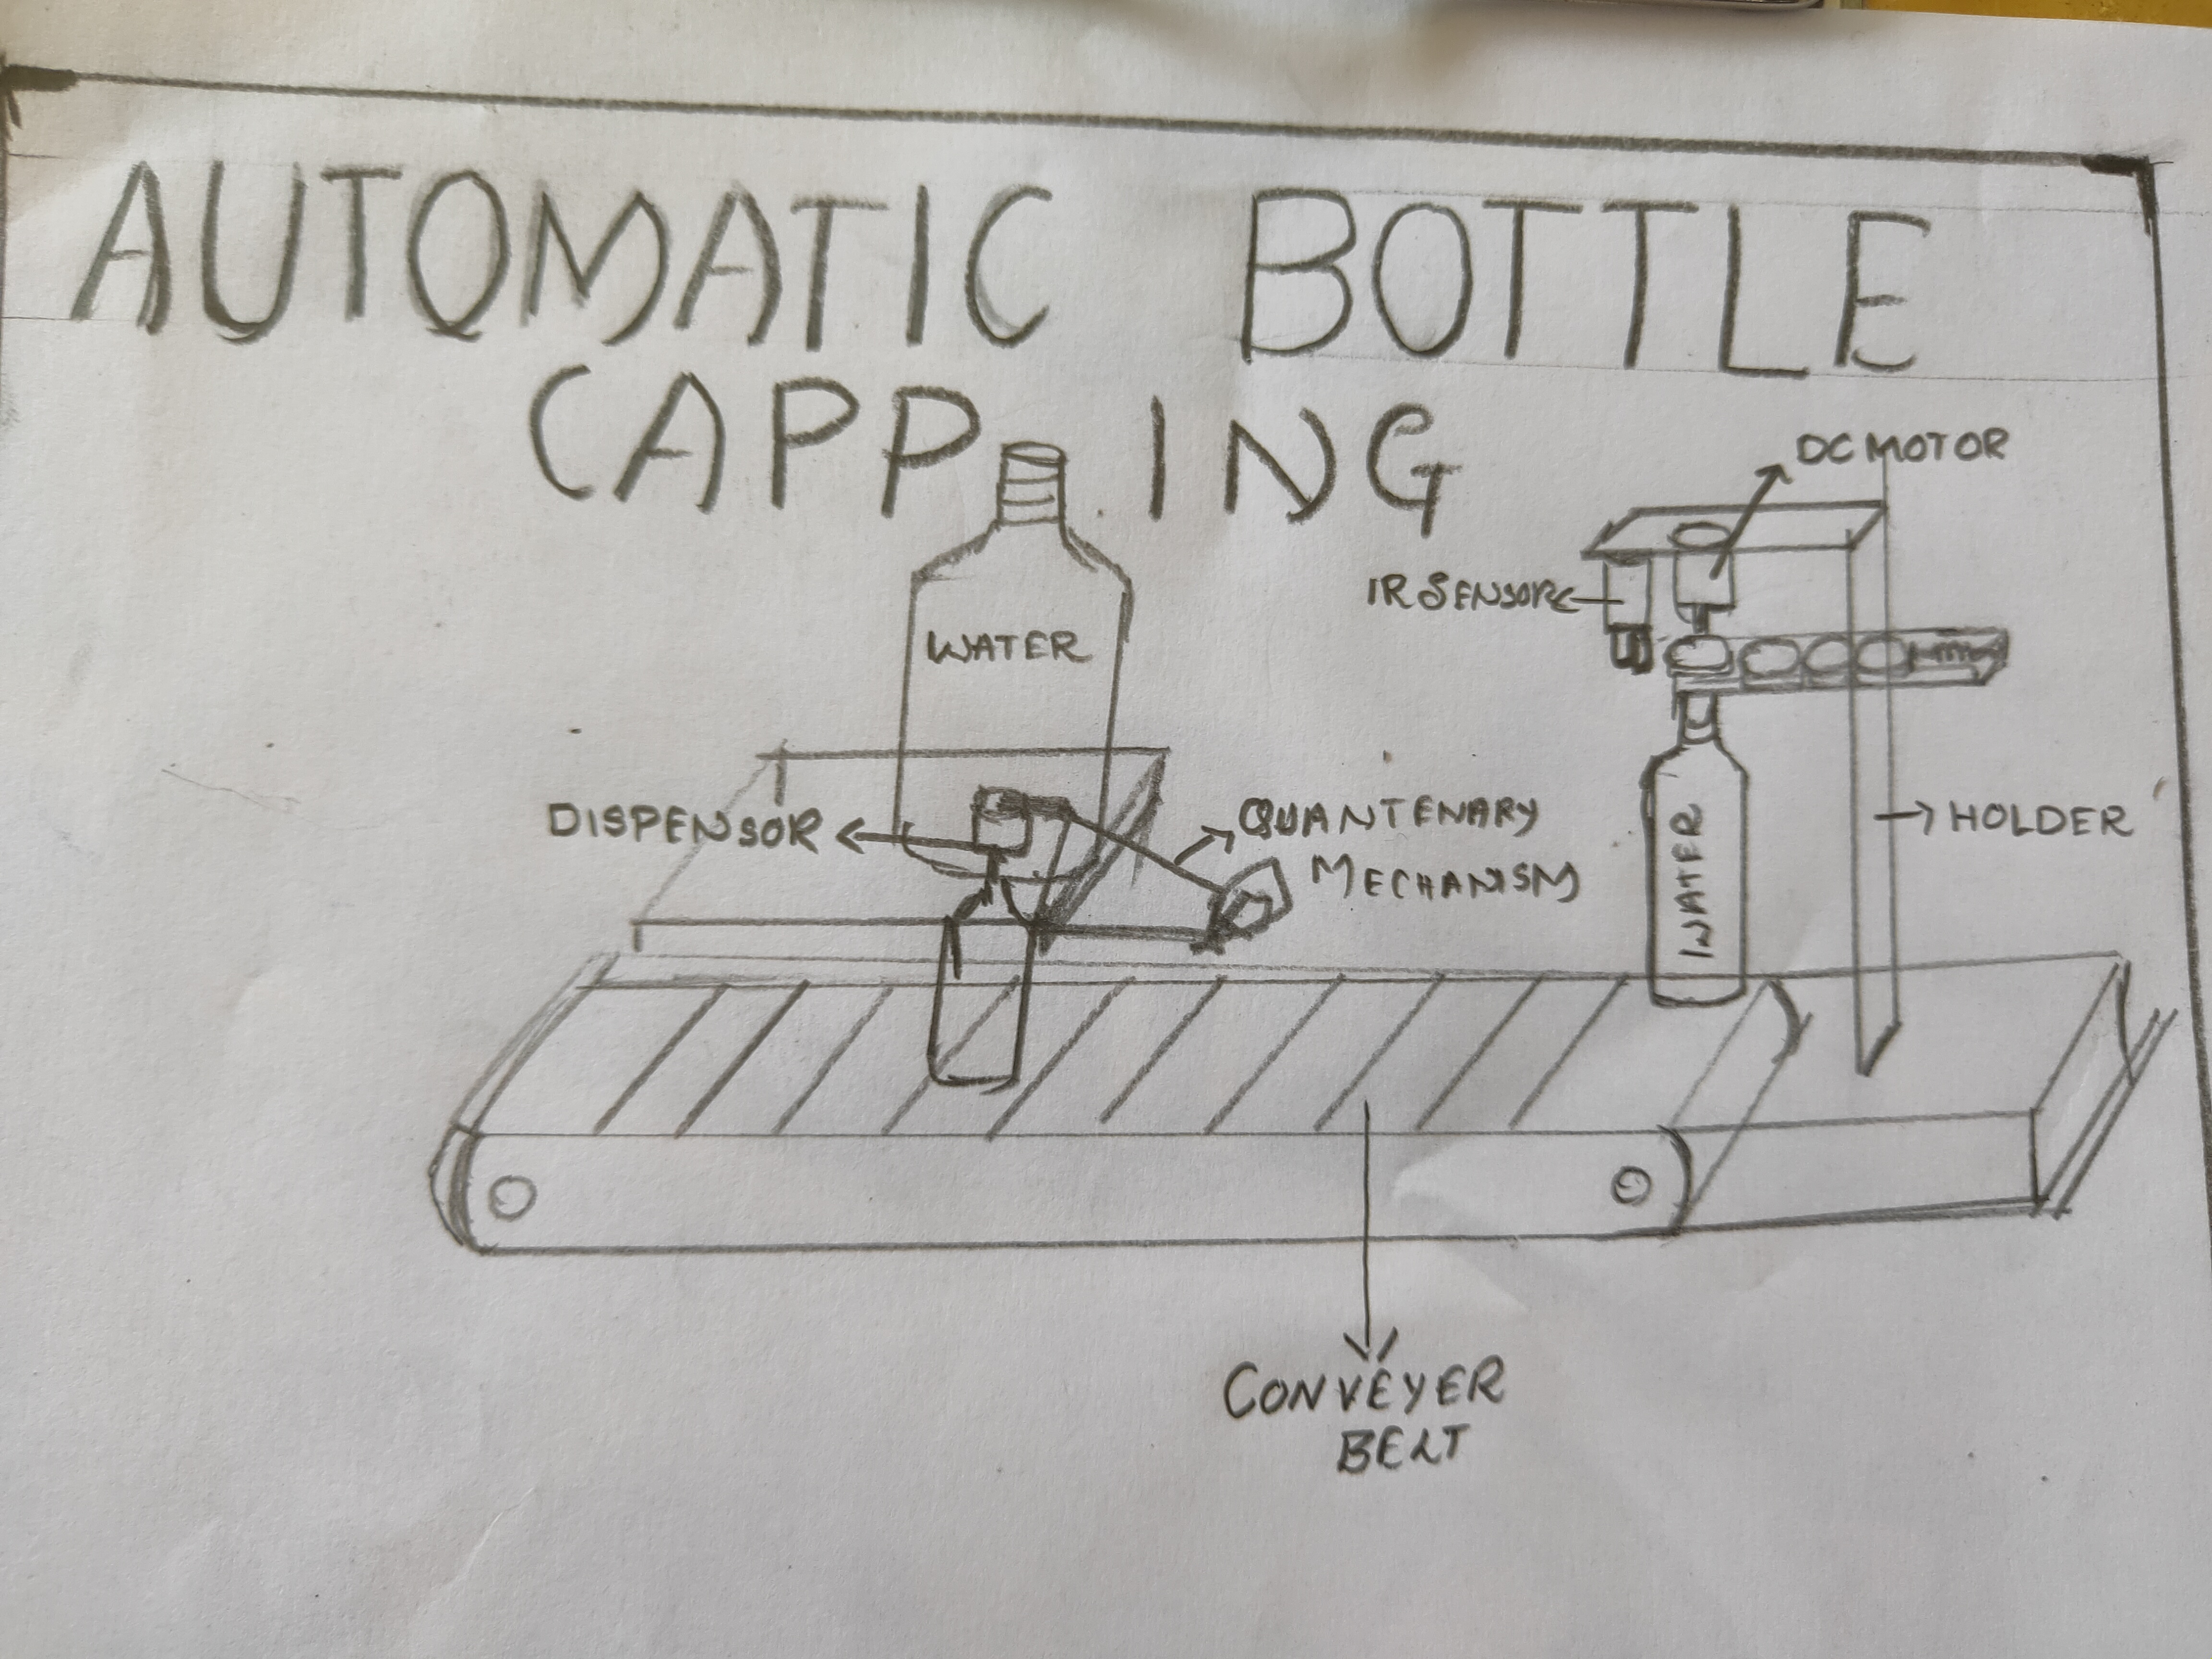 AUTOMATIC BOTTLE
CAPPING
DC MOTOR
IR SENSOR
WATER
DISPENSOR
QUANTENARY
MECHANISM
WATER
HOLDER
CONVEYER
BELT